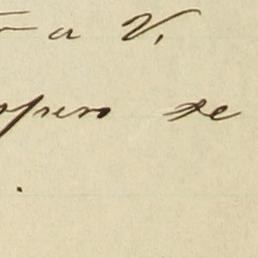 a V.
spero se
.